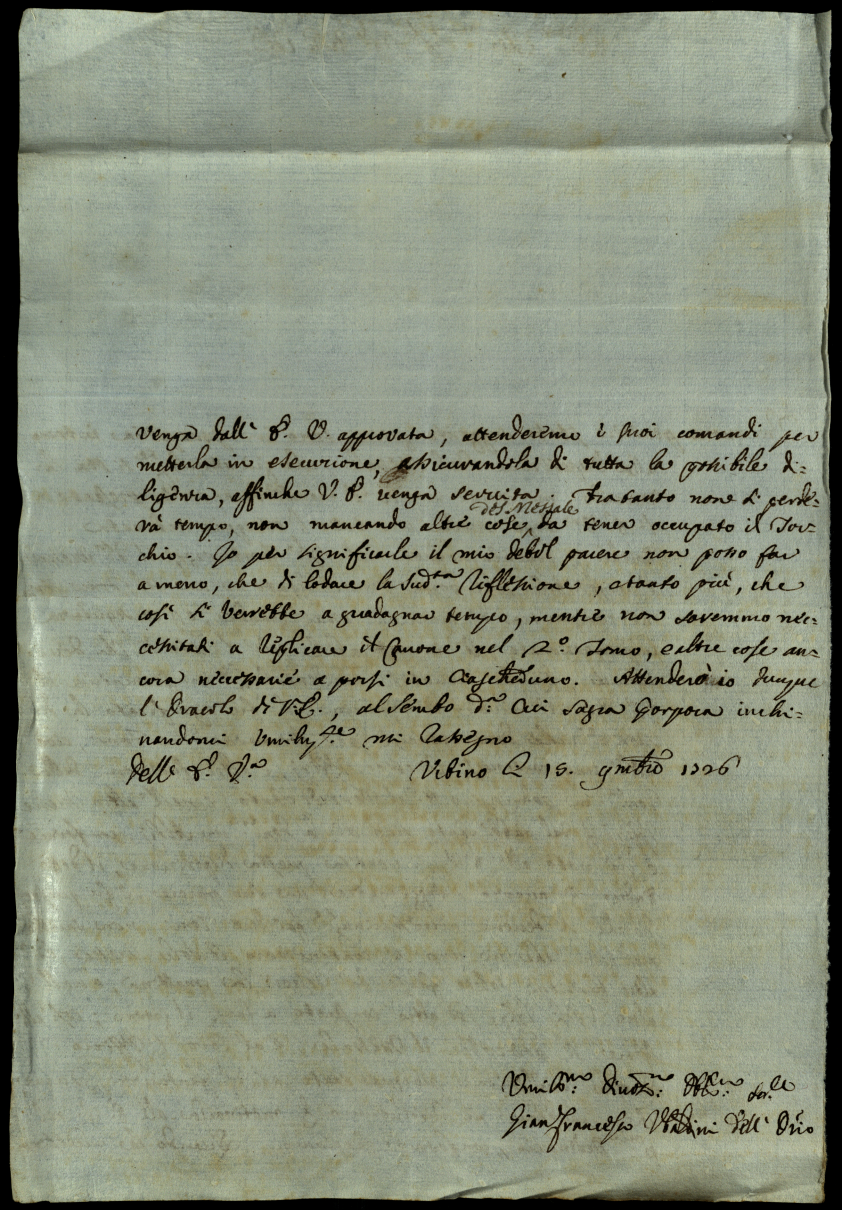 venga dall' E. V. approvata, attenderemo i suoi comandi per
metterla in esecuzione, assicurandola di tutta la possibile di=
ligenza, affinche V. E. venga servita. Tratanto non si perde=
rà tempo, non mancando altre cose del Messale da tener occupato il Tor=
chio. Io per significarle il mio debol parere non posso far
a meno, che di lodare la sud.ta riflessione, a tanto più, che
così si verrebbe a guadagnar tempo, mentre non saremmo nec=
cessitati a replicare il Canone nel 2.º Tomo, e altre cose an=
cora necessarie a porsi in ciascheduno. Attenderò io dunque
l'Oracolo di V. E., al lembo d. cui sagra Porpora inchi=
nandomi umilm.te mi rassegno
Dell' E. V.a
Urbino li 15. 9mbre 1726
Umil.mo Divot.mo Obbl.mo Ser.le
Gian Francesco Ubaldini dell'